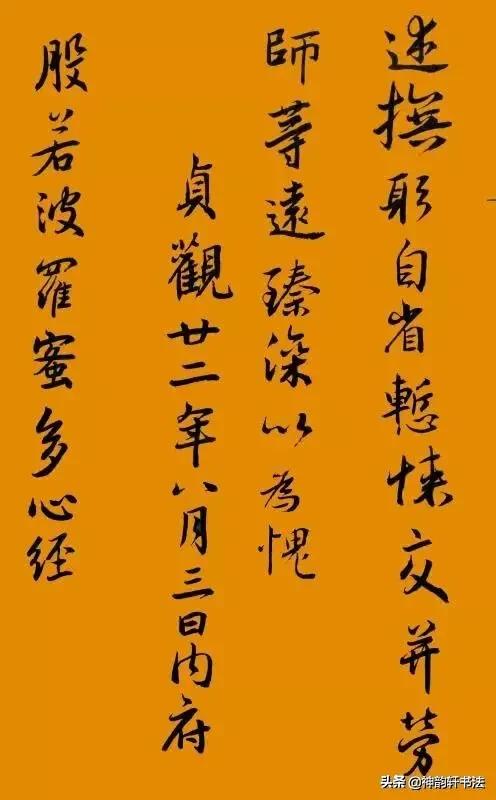 述撫躬自省慙悚交并勞
師等遠臻深以為愧
貞觀廿二年八月三日內府
般若波羅蜜多心經
头条 @神韵轩书法